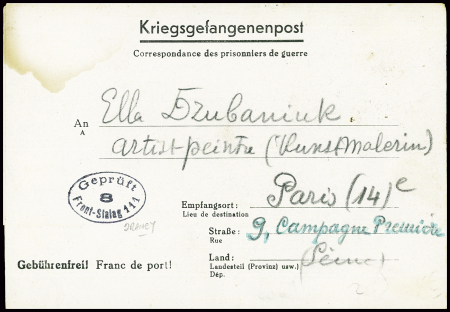 Kriegsgefangenenpost
Correspondance des prisonniers de guerre
An Ella Dzubaniuk
A
artist-peintre (Kunstmalerin)
Geprüft
8
Front-Stalag 111
DRANCY
Empfangsort: Paris (14)e
Lieu de destination
Straße: 9, Campagne Première
Rue
Gebührenfrei! Franc de port!
Land: (Seine)
Landesteil (Provinz) usw.)
Dép.
2